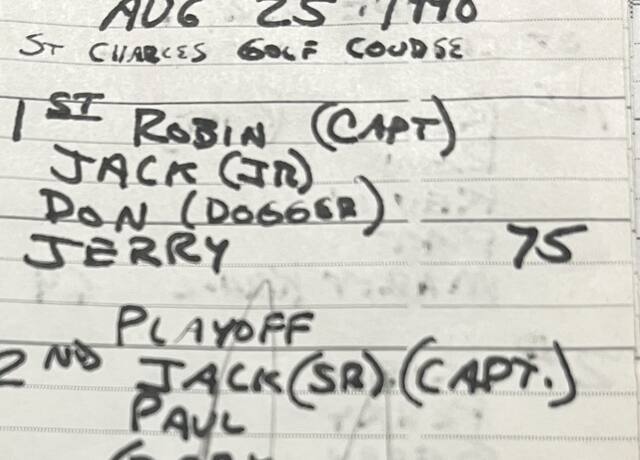 AUG 25 1990
ST CHARLES GOLF COURSE
1ST ROBIN (CAPT)
JACK (JR)
DON (DOGGER)
JERRY 75
PLAYOFF
2ND JACK (SR). (CAPT.)
PAUL